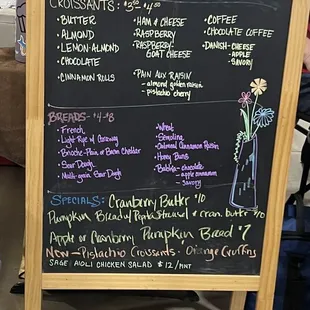 CROISSANTS: $3.50 - $4.50
• BUTTER
• ALMOND
• LEMON-ALMOND
• CHOCOLATE
CINNAMON ROLLS
• HAM & CHEESE
• RASPBERRY
• RASPBERRY-
GOAT CHEESE
• PAIN AUX RAISIN
- almond golden raisin
- pistachio cherry
• COFFEE
• CHOCOLATE COFFEE
• DANISH - CHEESE
- APPLE
- SAVORY
BREADS - $4-$8
• French,
• Light Rye w/ Caraway
• Brioche - Plain or Bacon Cheddar
• Sour Dough
• Multi-grain Sour Dough
• Wheat
• Semolina
• Oatmeal Cinnamon Raisin
• Honey Buns
• Babka - chocolate
- apple cinnamon
- savory
SPECIALS: Cranberry Butter $10
Pumpkin Bread w/ Pepita Streusel & cran. butter $10
Apple or Cranberry Pumpkin Bread $7
New - Pistachio Croissants • Orange Cruffins
SAGE AIOLI CHICKEN SALAD $12/PINT